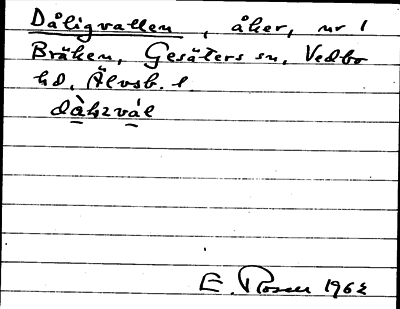 Dåligvallen, åker, nr 1
Bräken, Gesäters sn, Vedbo
hd, Älvsb. l
E. Rosen 1962